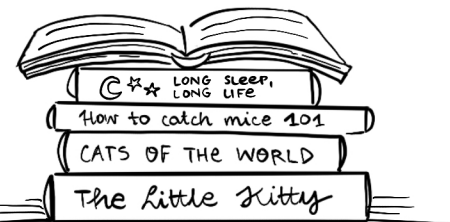 LONG SLEEP,
LONG LIFE
How to catch mice 101
CATS OF THE WORLD
The Little Kitty